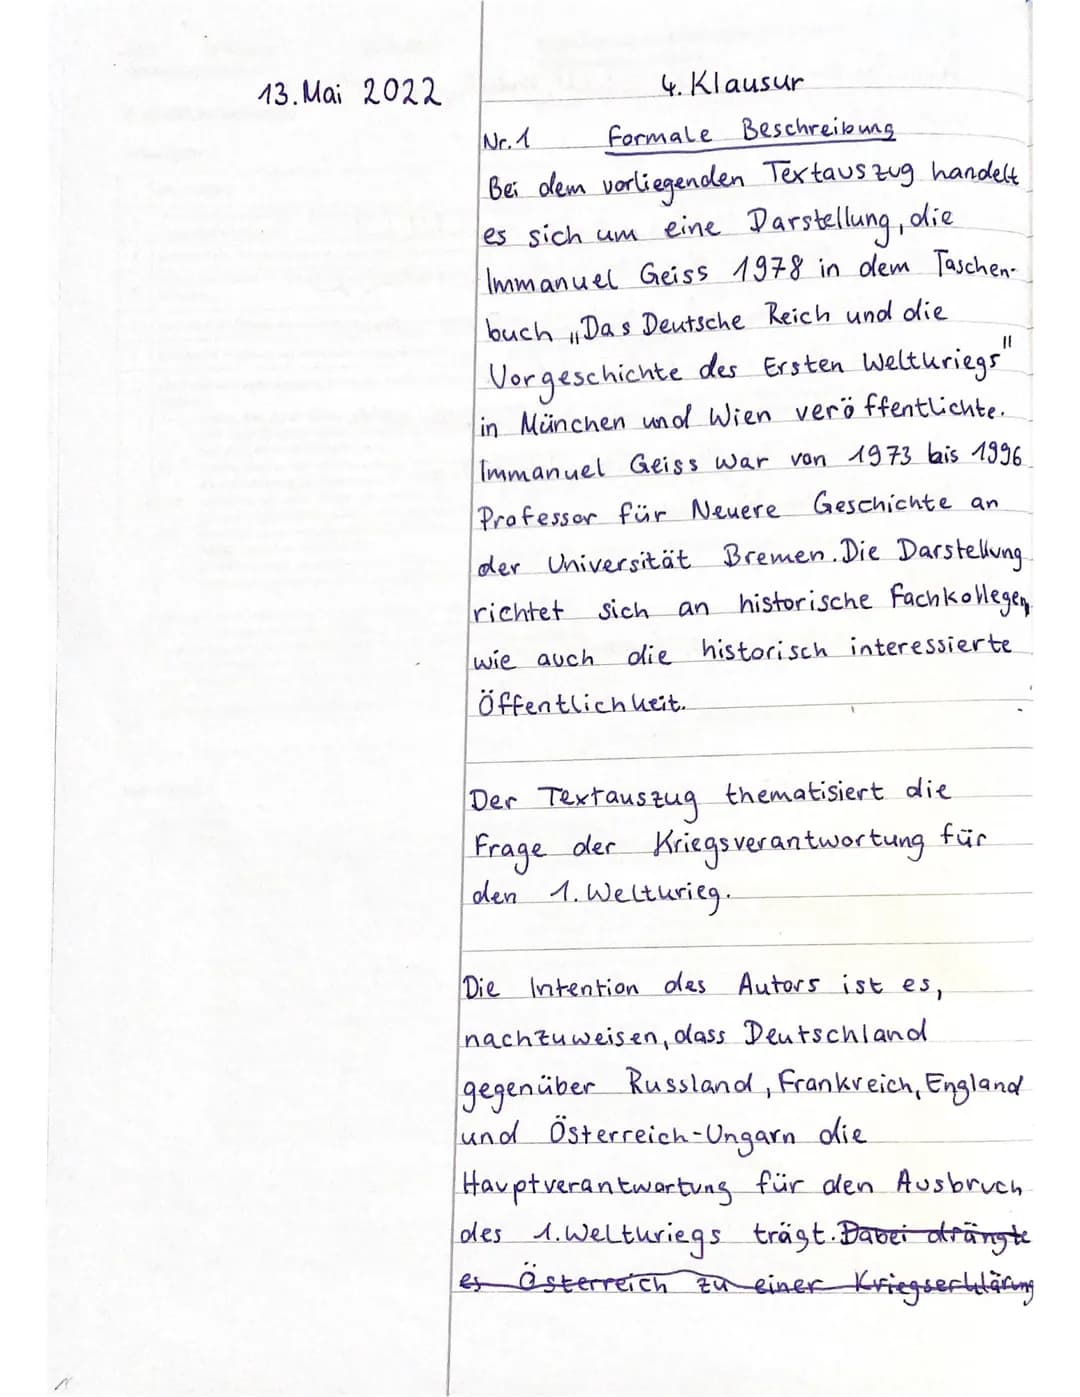 13. Mai 2022
4. Klausur
Nr. 1 Formale Beschreibung
Bei dem vorliegenden Textauszug handelt
es sich um eine Darstellung, die
Immanuel Geiss 1978 in dem Taschen-
buch „Das Deutsche Reich und die
Vorgeschichte des Ersten Weltkriegs"
in München und Wien veröffentlichte.
Immanuel Geiss war von 1973 bis 1996
Professor für Neuere Geschichte an
der Universität Bremen. Die Darstellung
richtet sich an historische Fachkollegen,
wie auch die historisch interessierte
Öffentlichkeit.
Der Textauszug thematisiert die
Frage der Kriegsverantwortung für
den 1. Weltkrieg.
Die Intention des Autors ist es,
nachzuweisen, dass Deutschland
gegenüber Russland, Frankreich, England
und Österreich-Ungarn die
Hauptverantwortung für den Ausbruch
des 1. Weltkriegs trägt. Dabei drängte
es Österreich zu einer Kriegserklärung